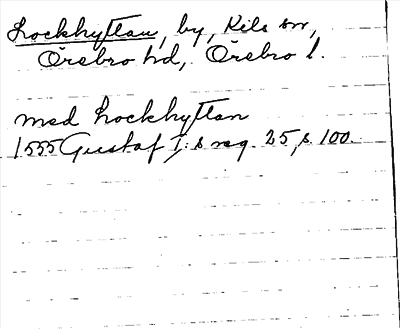 Lockhyttan, by, Kils sn,
Örebro hd, Örebro l.
med Lockhyttan
1555 Gustaf I:s reg. 25, s. 100.